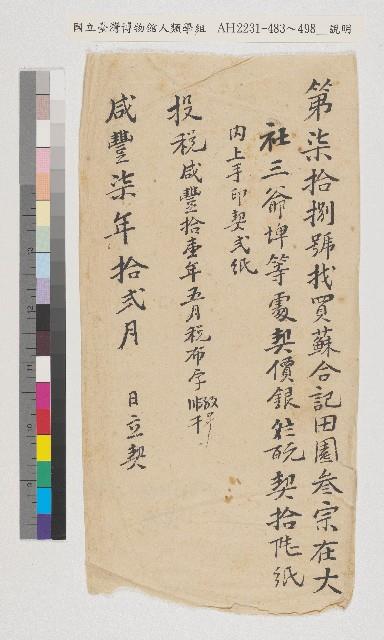 國立臺灣博物館人類學組 AH2231-483～498＿說明
第柒拾捌號找買蘇合記田園叁宗在大
社三爺埤等處契價銀 契拾 紙
內上手印契弍紙
投稅咸豐拾壹年五月稅布字
咸豐柒年拾弍月 日立契